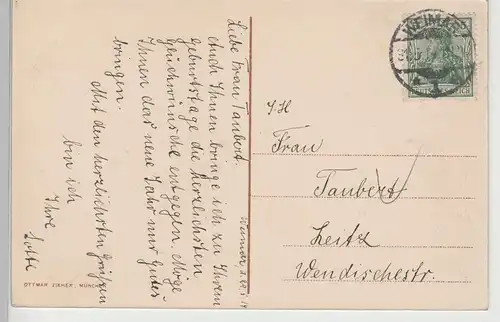 Liebe Frau Taubert.
Auch Ihnen bringe ich zu Ihrem
Geburtstage die herzlichsten
Glückwünsche entgegen. Möge
Ihnen das neue Jahr nur Gutes
bringen.
Mit den herzlichsten Grüßen
bin ich
Ihre
Lotte
Weimar, d.
OTTMAR ZIEHER, MÜNCHEN
WEIMAR
Frau
Taubert
Zeitz
Wendischestr.